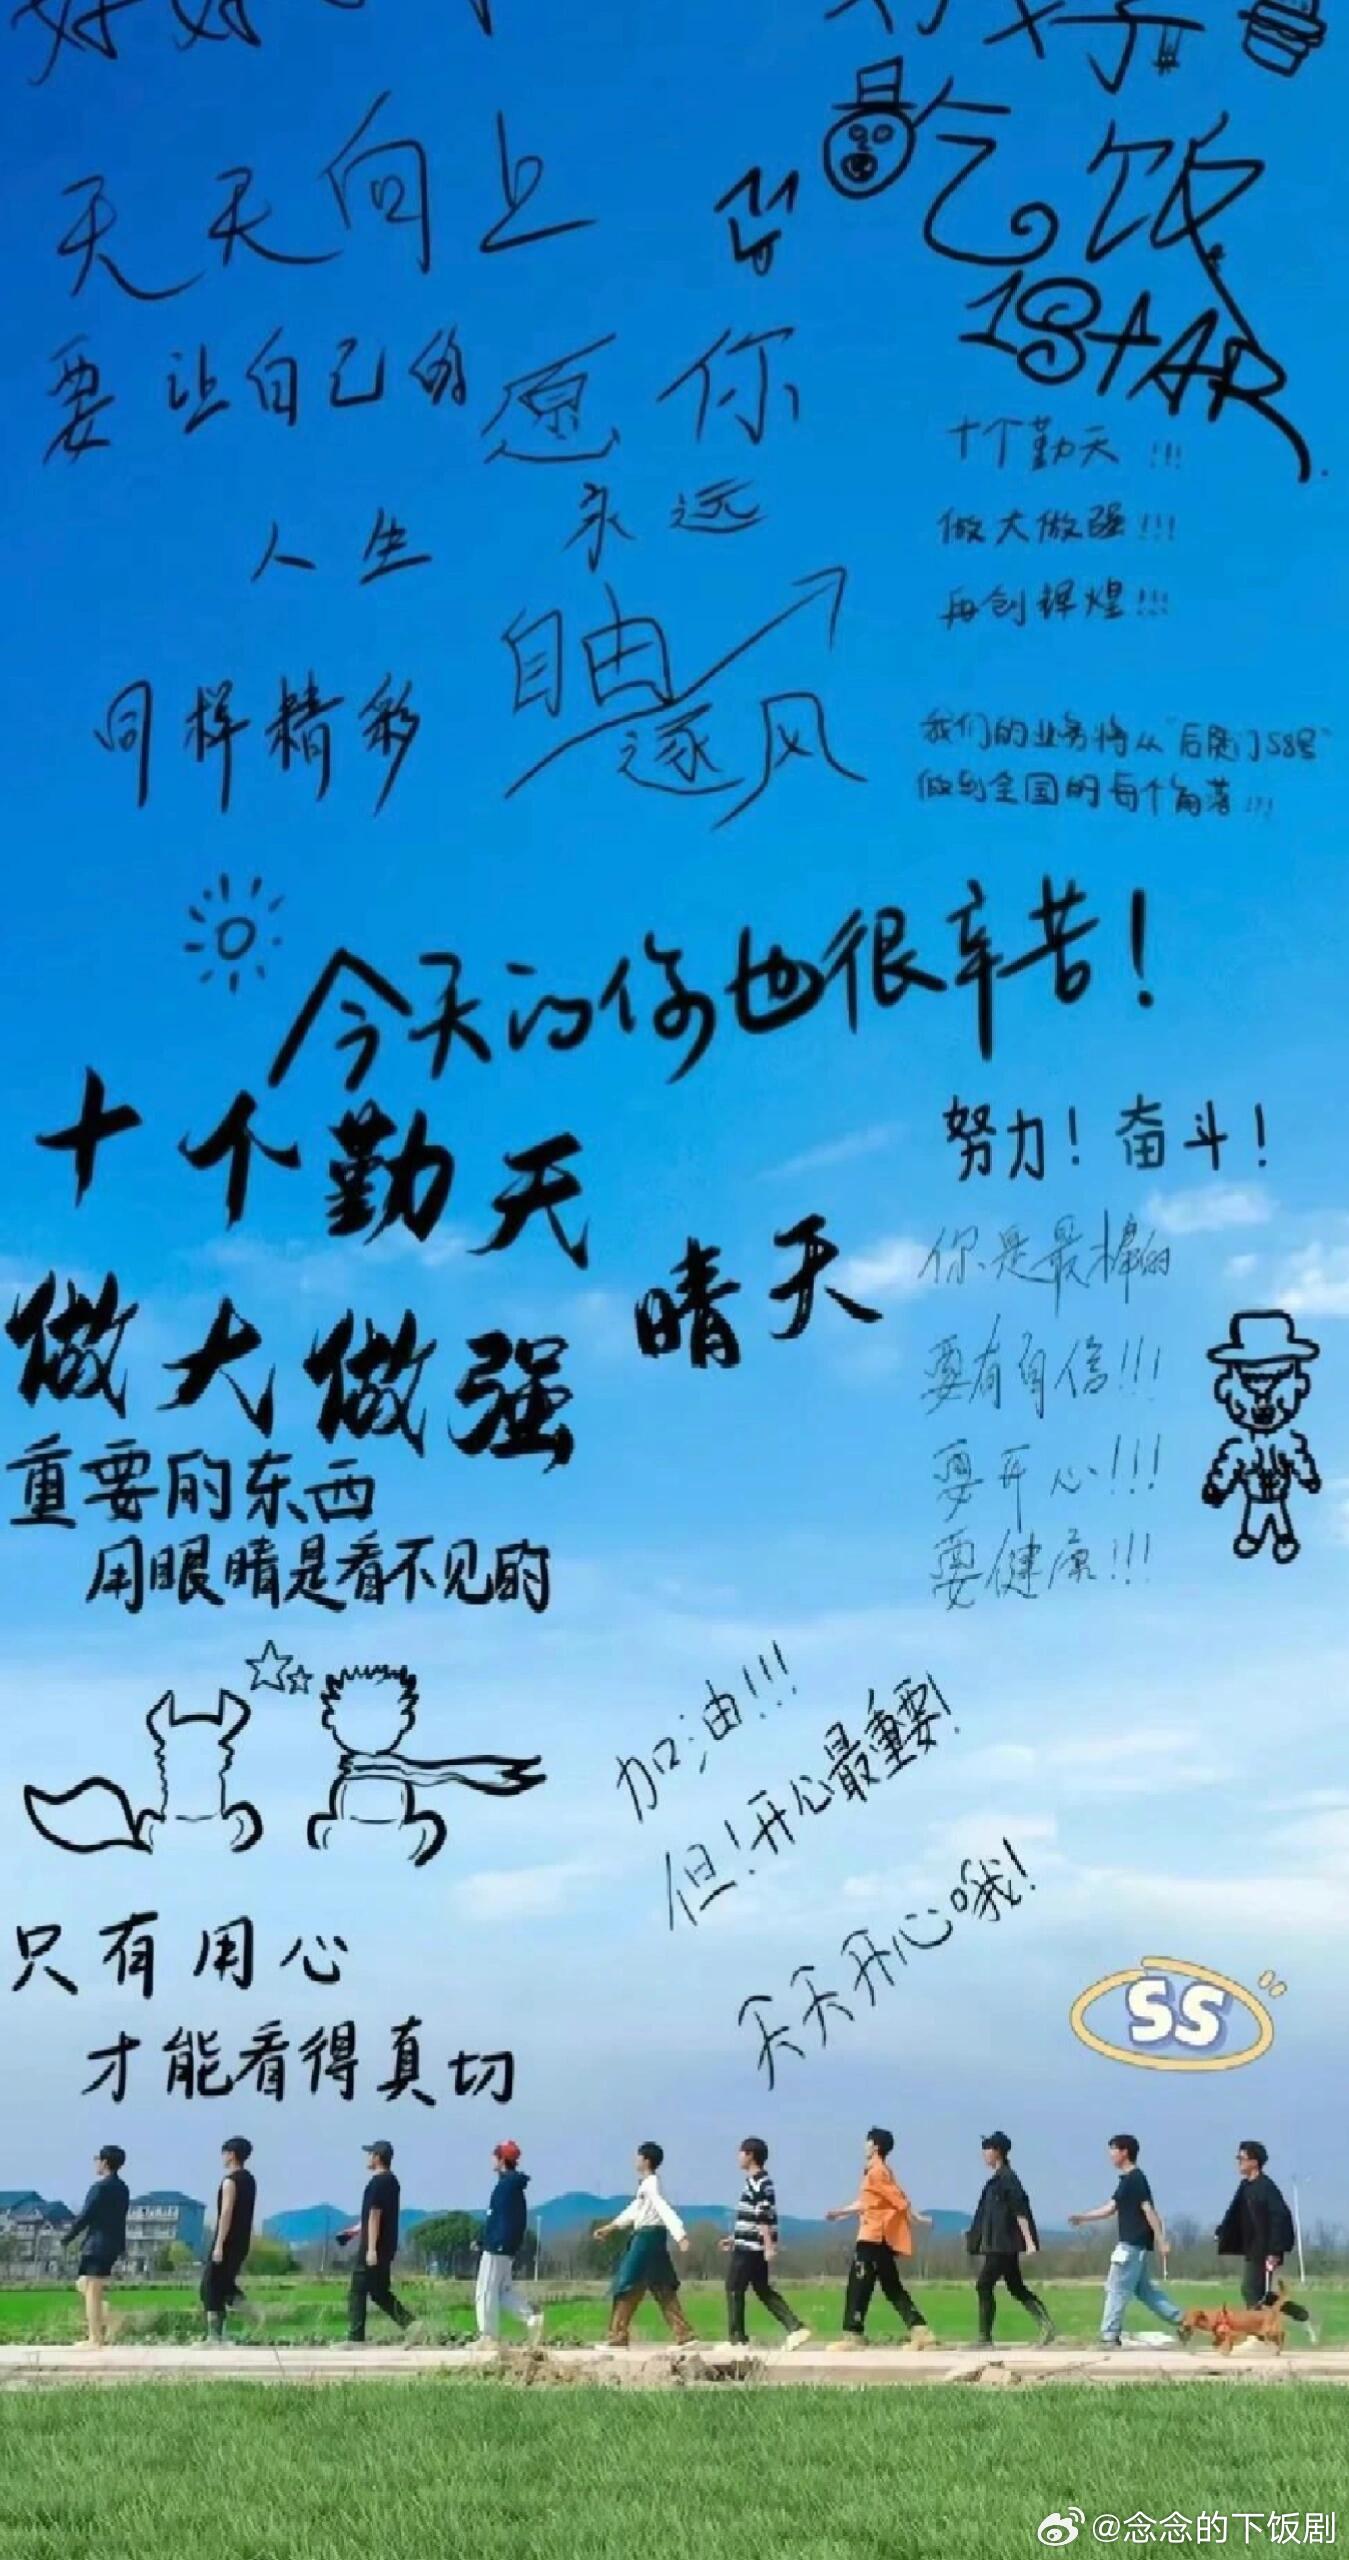 天天向上
要让自己的
人生
同样精彩
愿你
永远
自由
逐风
好
吃饭
1STAR
十个勤天!!!
做大做强!!!
再创辉煌!!!
我们的业务将从"后陡门58号"
做到全国的每个角落!!!
今天的你也很辛苦!
十个勤天
做大做强
晴天
努力!奋斗!
你是最棒的
要有自信!!!
要开心!!!
要健康!!!
重要的东西
用眼睛是看不见的
加油!!!
但!开心最重要!
天天开心哦!
只有用心
才能看得真切
SS
@念念的下饭剧